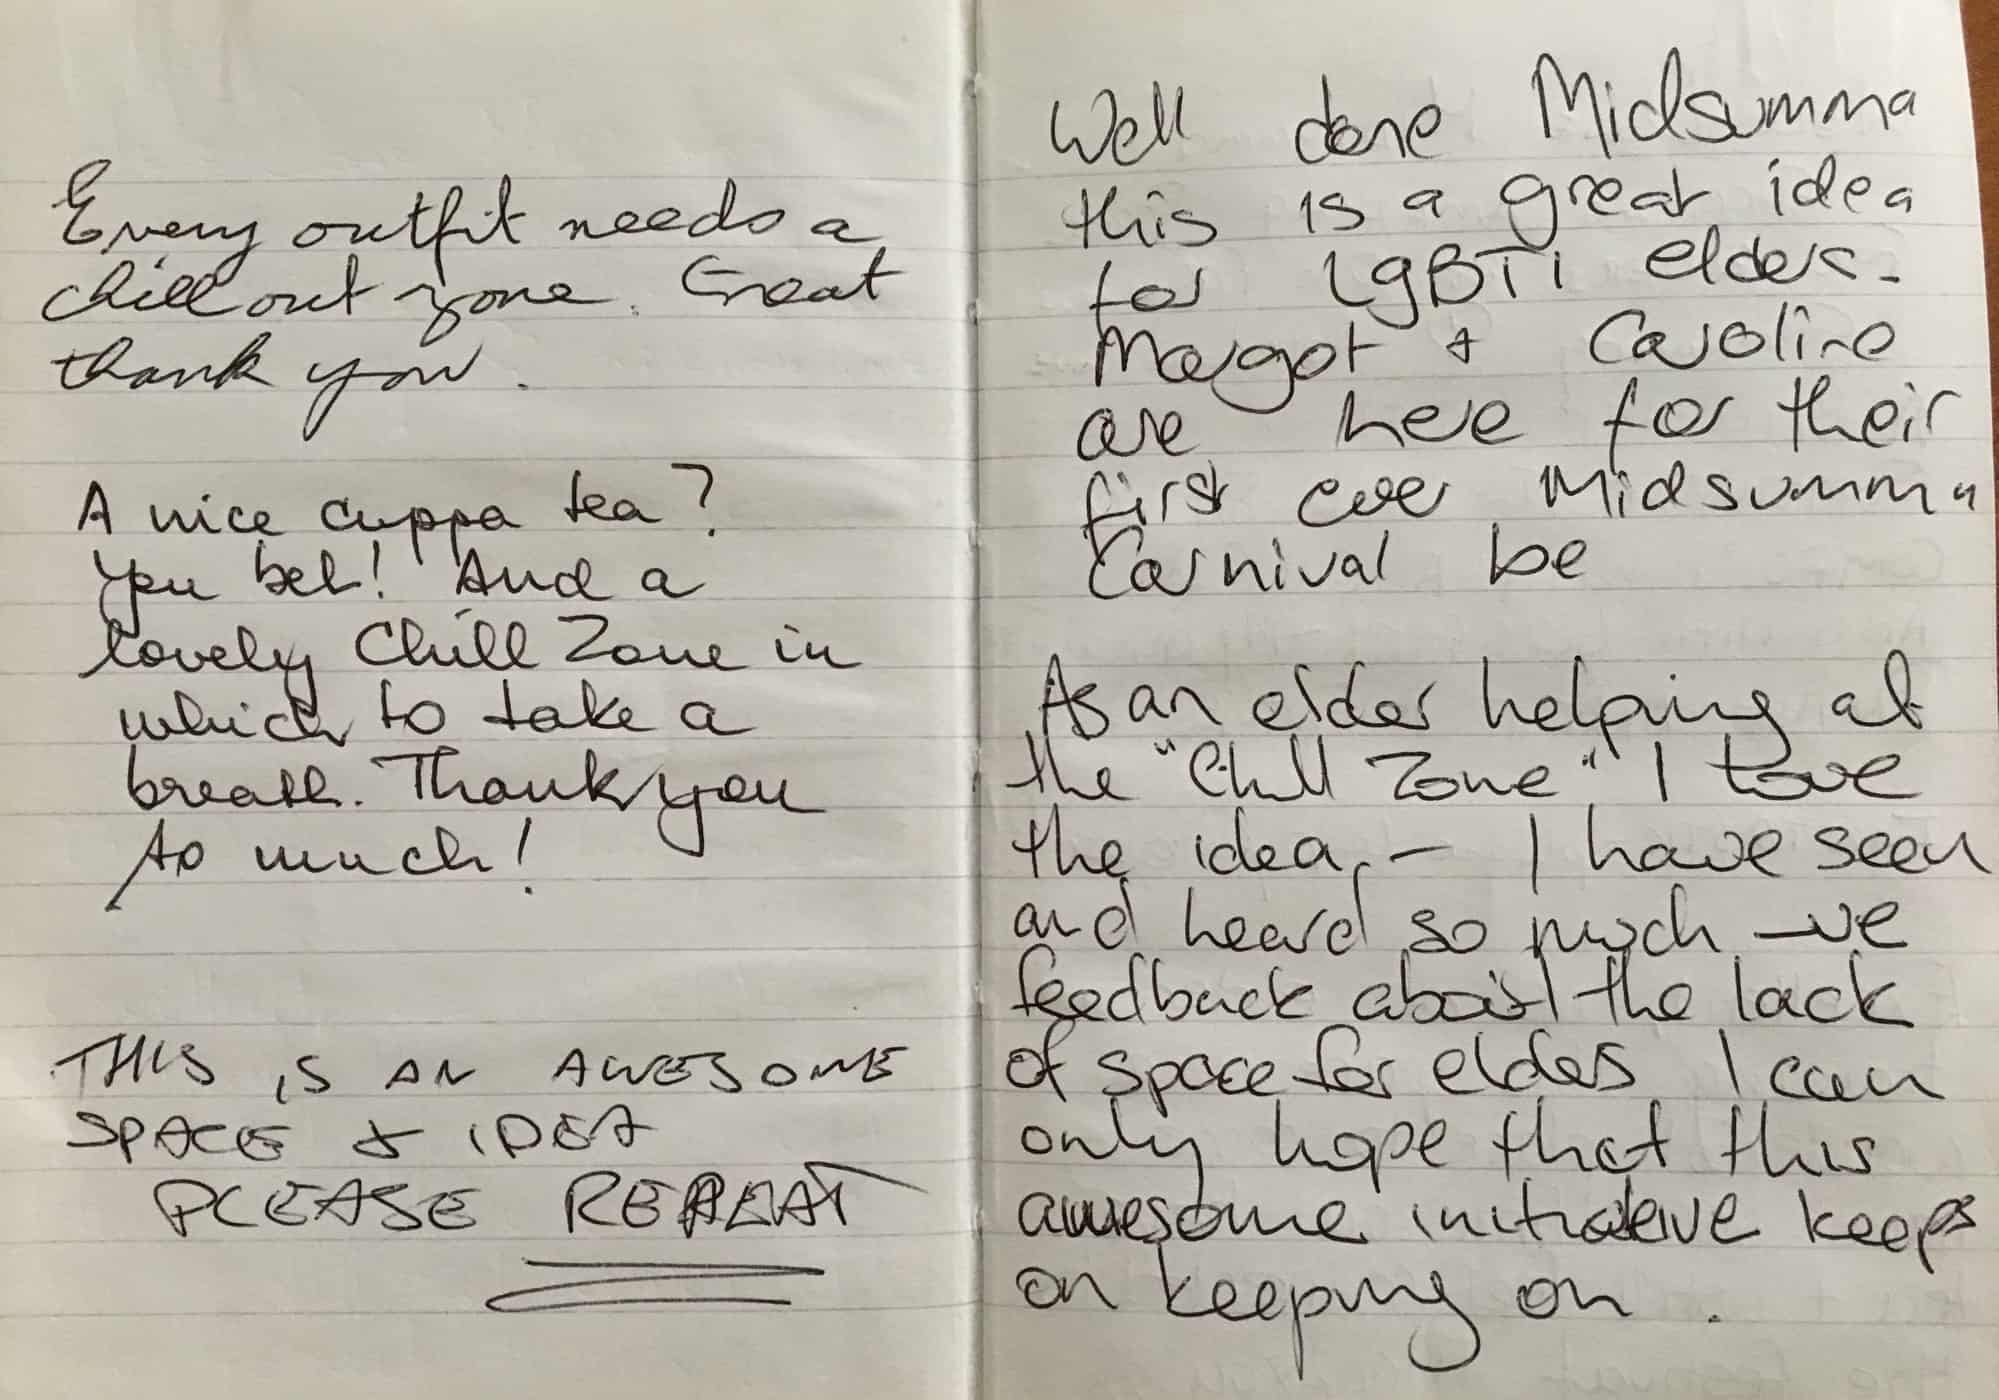 Every outfit needs a
chill out zone. Great
thank you.
A nice cuppa tea?
You bet! And a
lovely Chill Zone in
which to take a
breath. Thank you
so much!
THIS IS AN AWESOME
SPACE & IDEA
PLEASE REPEAT
Well done Midsumma
this is a great idea
for LgBTI elders.
Margot + Caroline
are here for their
first ever Midsumma
Carnival be
As an elder helping at
the "Chill Zone" I love
the idea. – I have seen
and heard so much -ve
feedback about the lack
of space for elders I can
only hope that this
awesome initiative keeps
on keeping on.